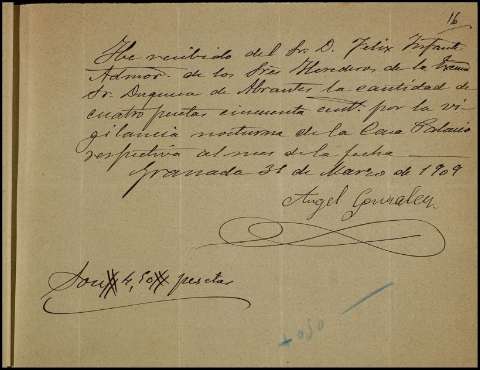 16
He recibido del Sr. D. Felix Infante
Admor. de los Sres Herederos de la Excma
Sr. Duquesa de Abrantes la cantidad de
cuatro pesetas cincuenta cents. por la vi-
gilancia nocturna de la Casa Palacio
respectiva al mes de la fecha
Granada 31 de Marzo de 1909
Angel Gonzalez
Son 4,50 pesetas
+ 050